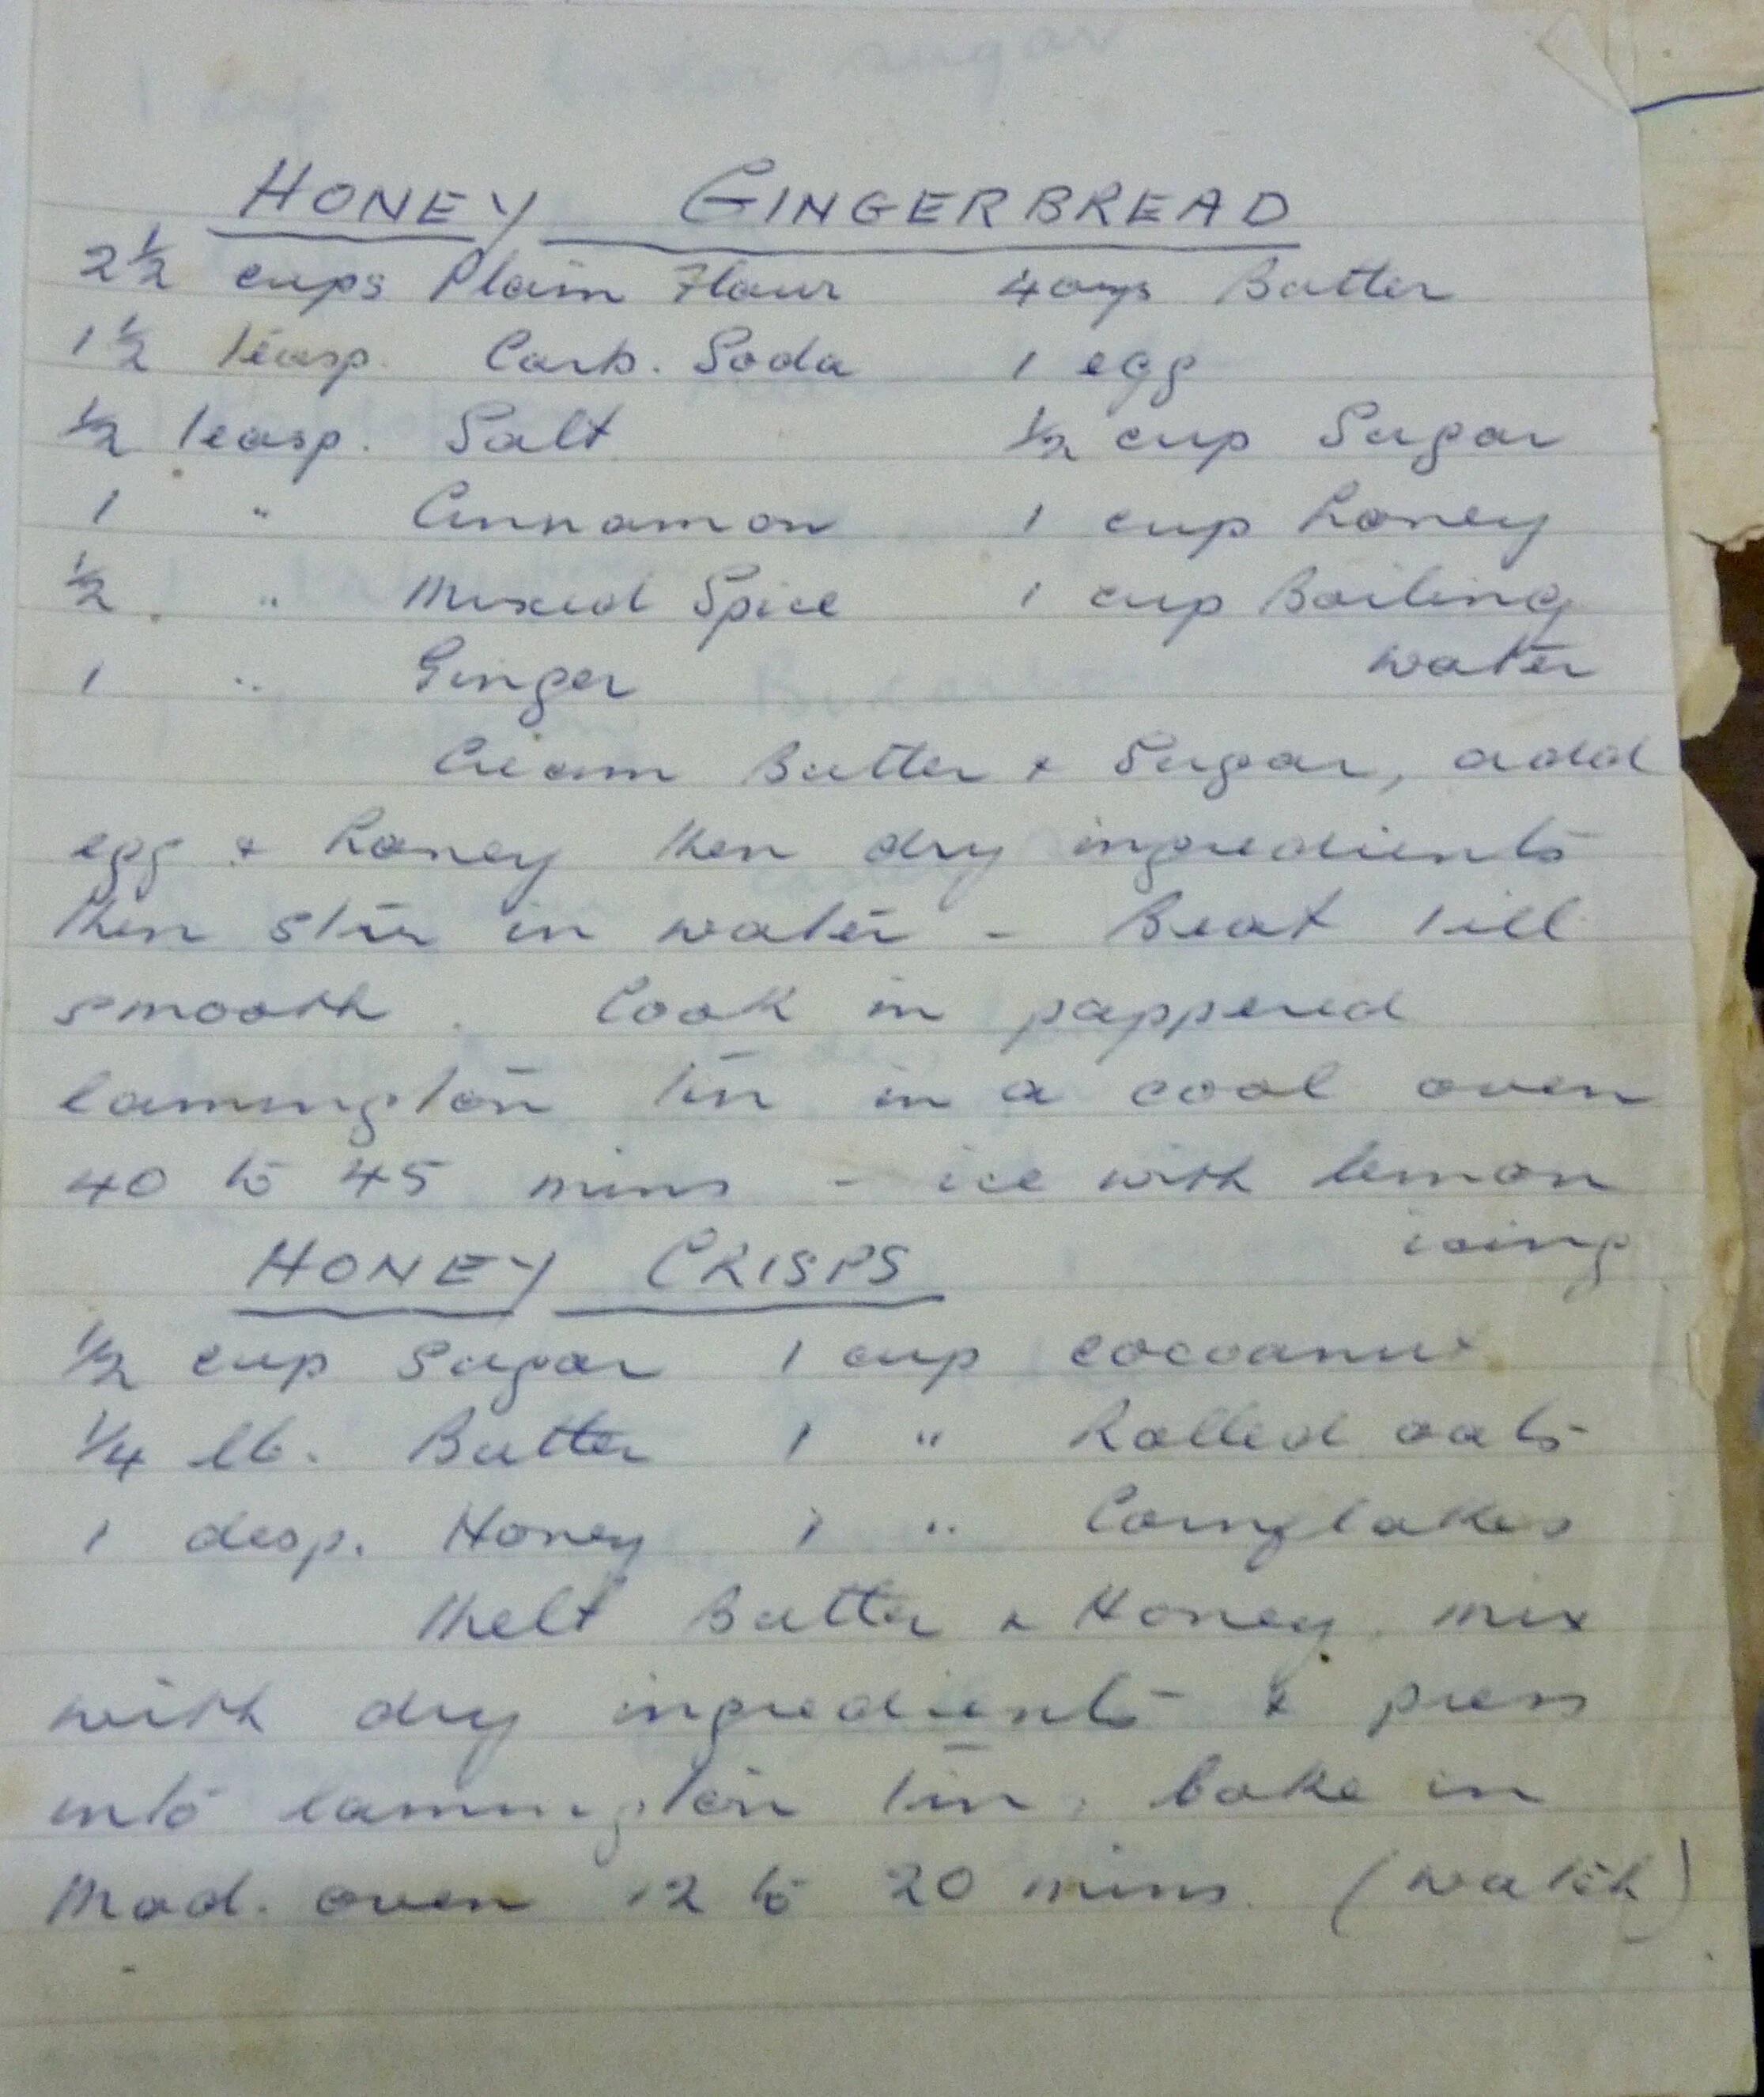 HONEY GINGERBREAD
2½ cups Plain Flour 4ozs Butter
1½ teasp. Carb. Soda 1 egg
½ teasp. Salt ½ cup Sugar
1 " Cinnamon 1 cup honey
½ " Mixed Spice 1 cup Boiling
1 " Ginger water
Cream Butter & Sugar, add
egg & honey then dry ingredients
then stir in water - Beat till
smooth. Cook in pappered
lamington tin in a cool oven
40 to 45 mins - ice with lemon
icing
HONEY CRISPS
½ cup Sugar 1 cup cocoanut
¼ lb. Butter 1 " Rolled oats
1 desp. Honey 1 " Cornflakes
Melt Butter & Honey, mix
with dry ingredients & press
into lamington tin, bake in
Mod. oven 12 to 20 mins. (watch)